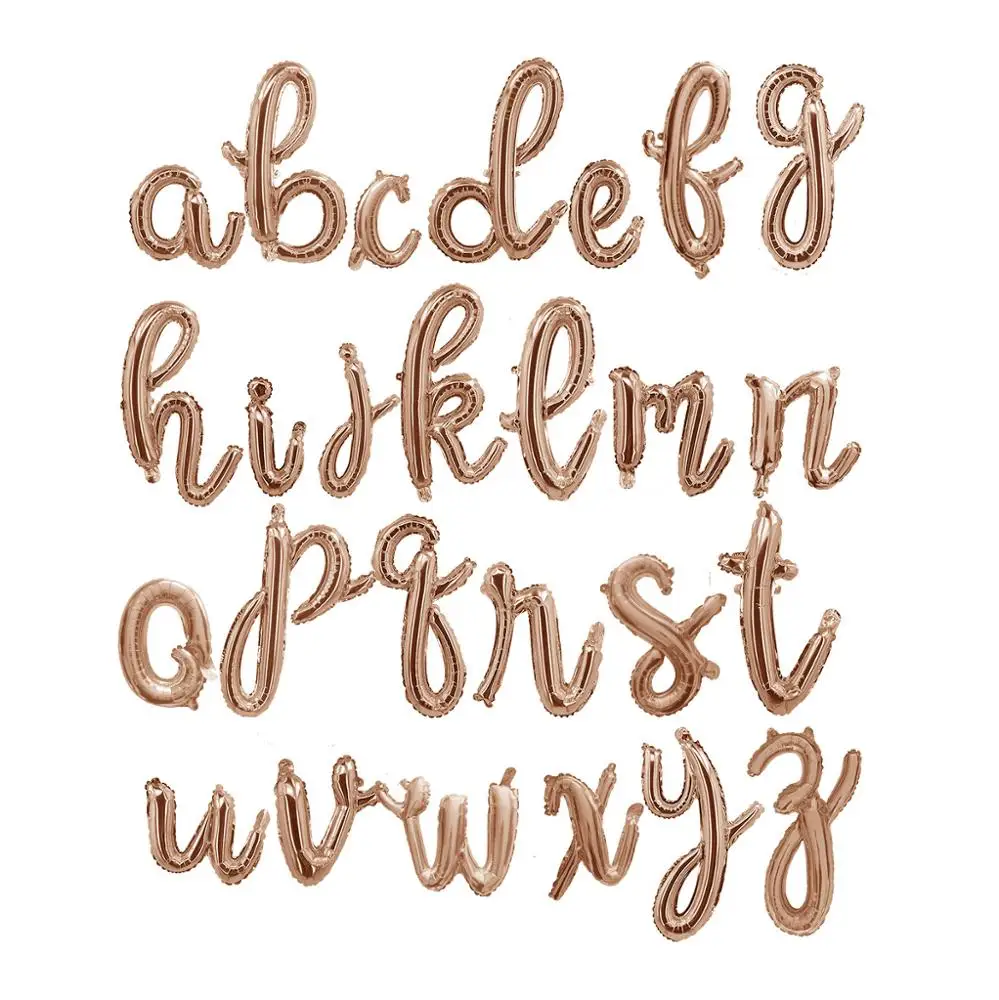 abcdefg
hijklmn
opqrst
uvwxyz